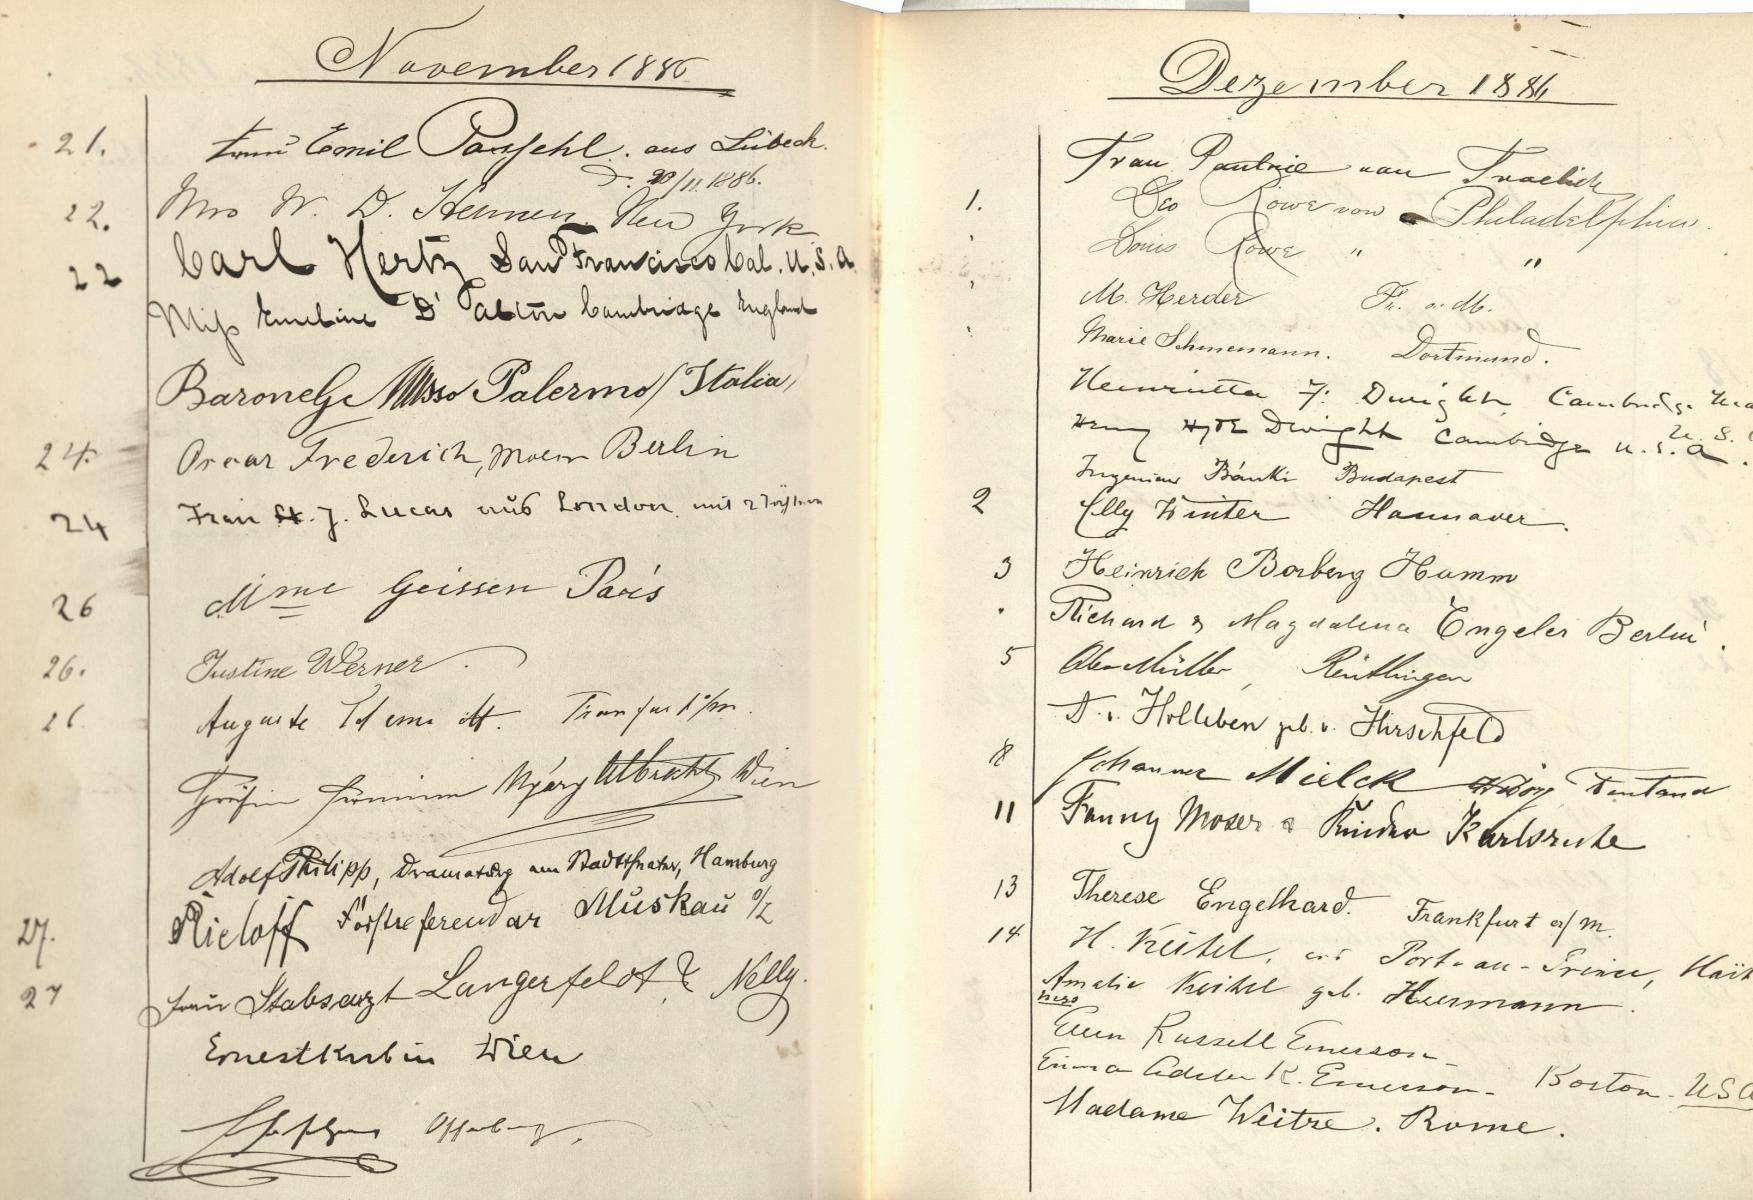 November 1886
21. Frau Emil Possehl. aus Lübeck.
d. 20/11.1886.
22. Mrs W. D. Hennen. New York
22 Carl Hertz San Francisco Cal. U.S.A
Miss Emeline D' Cambridge England
Baronesse Palermo (Italia)
24. Oscar Frederich, Berlin
24 Frau J. Lucas aus London mit 2
26 Mme Geissen Paris
26. Justine Werner.
26. Auguste Frankfurt a/m.
Gräfin Albrecht Wien
Adolf Philipp, Dramaturg am Stadttheater, Hamburg
27. Rieloff Forstreferendar Muskau O/L
27 Frau Stabsarzt Langerfeldt & Nelly.
Ernest Kubin Wien
Offenburg.
Dezember 1886
Frau Pauline von Froelich
1. Leo Rowe von Philadelphia.
Louis Rowe " "
M. Herder Fr. a. M.
Marie Schünemann. Dortmund.
Henrietta F. Dwight, Cambridge Mass
U.S.
Henry Hyde Dwight Cambridge U.S.A.
Ingenieur Bánki Budapest
2 Elly Winter Hannover.
3 Heinrich Borberg Hamm
Richard & Magdalena Engeler Berlin.
5 Müller, Reutlingen
D. v. Holleben geb. v. Hirschfeld
8 Johannes Mielck
11 Fanny Moser & Kinder Karlsruhe
13 Therese Engelhard. Frankfurt a/m.
14 H. Keitel, aus Port-au-Prince, Haïti
Amalie Keitel geb. Heermann.
Ellen Russell Emerson
Emma Adelia K. Emerson - Boston - USA
Madame Weitre. Rome.